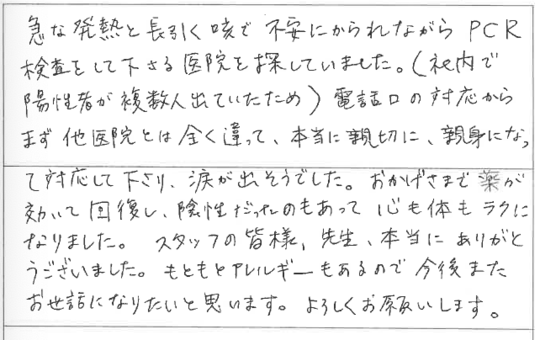 急な発熱と長引く咳で不安にかられながらPCR
検査をして下さる医院を探していました。(社内で
陽性者が複数人出ていたため)電話口の対応から
まず他医院とは全く違って、本当に親切に、親身になっ
て対応して下さり、涙が出そうでした。おかげさまで薬が
効いて回復し、陰性だったのもあって心も体もラクに
なりました。スタッフの皆様、先生、本当にありがと
うございました。もともとアレルギーもあるので今後また
お世話になりたいと思います。よろしくお願いします。